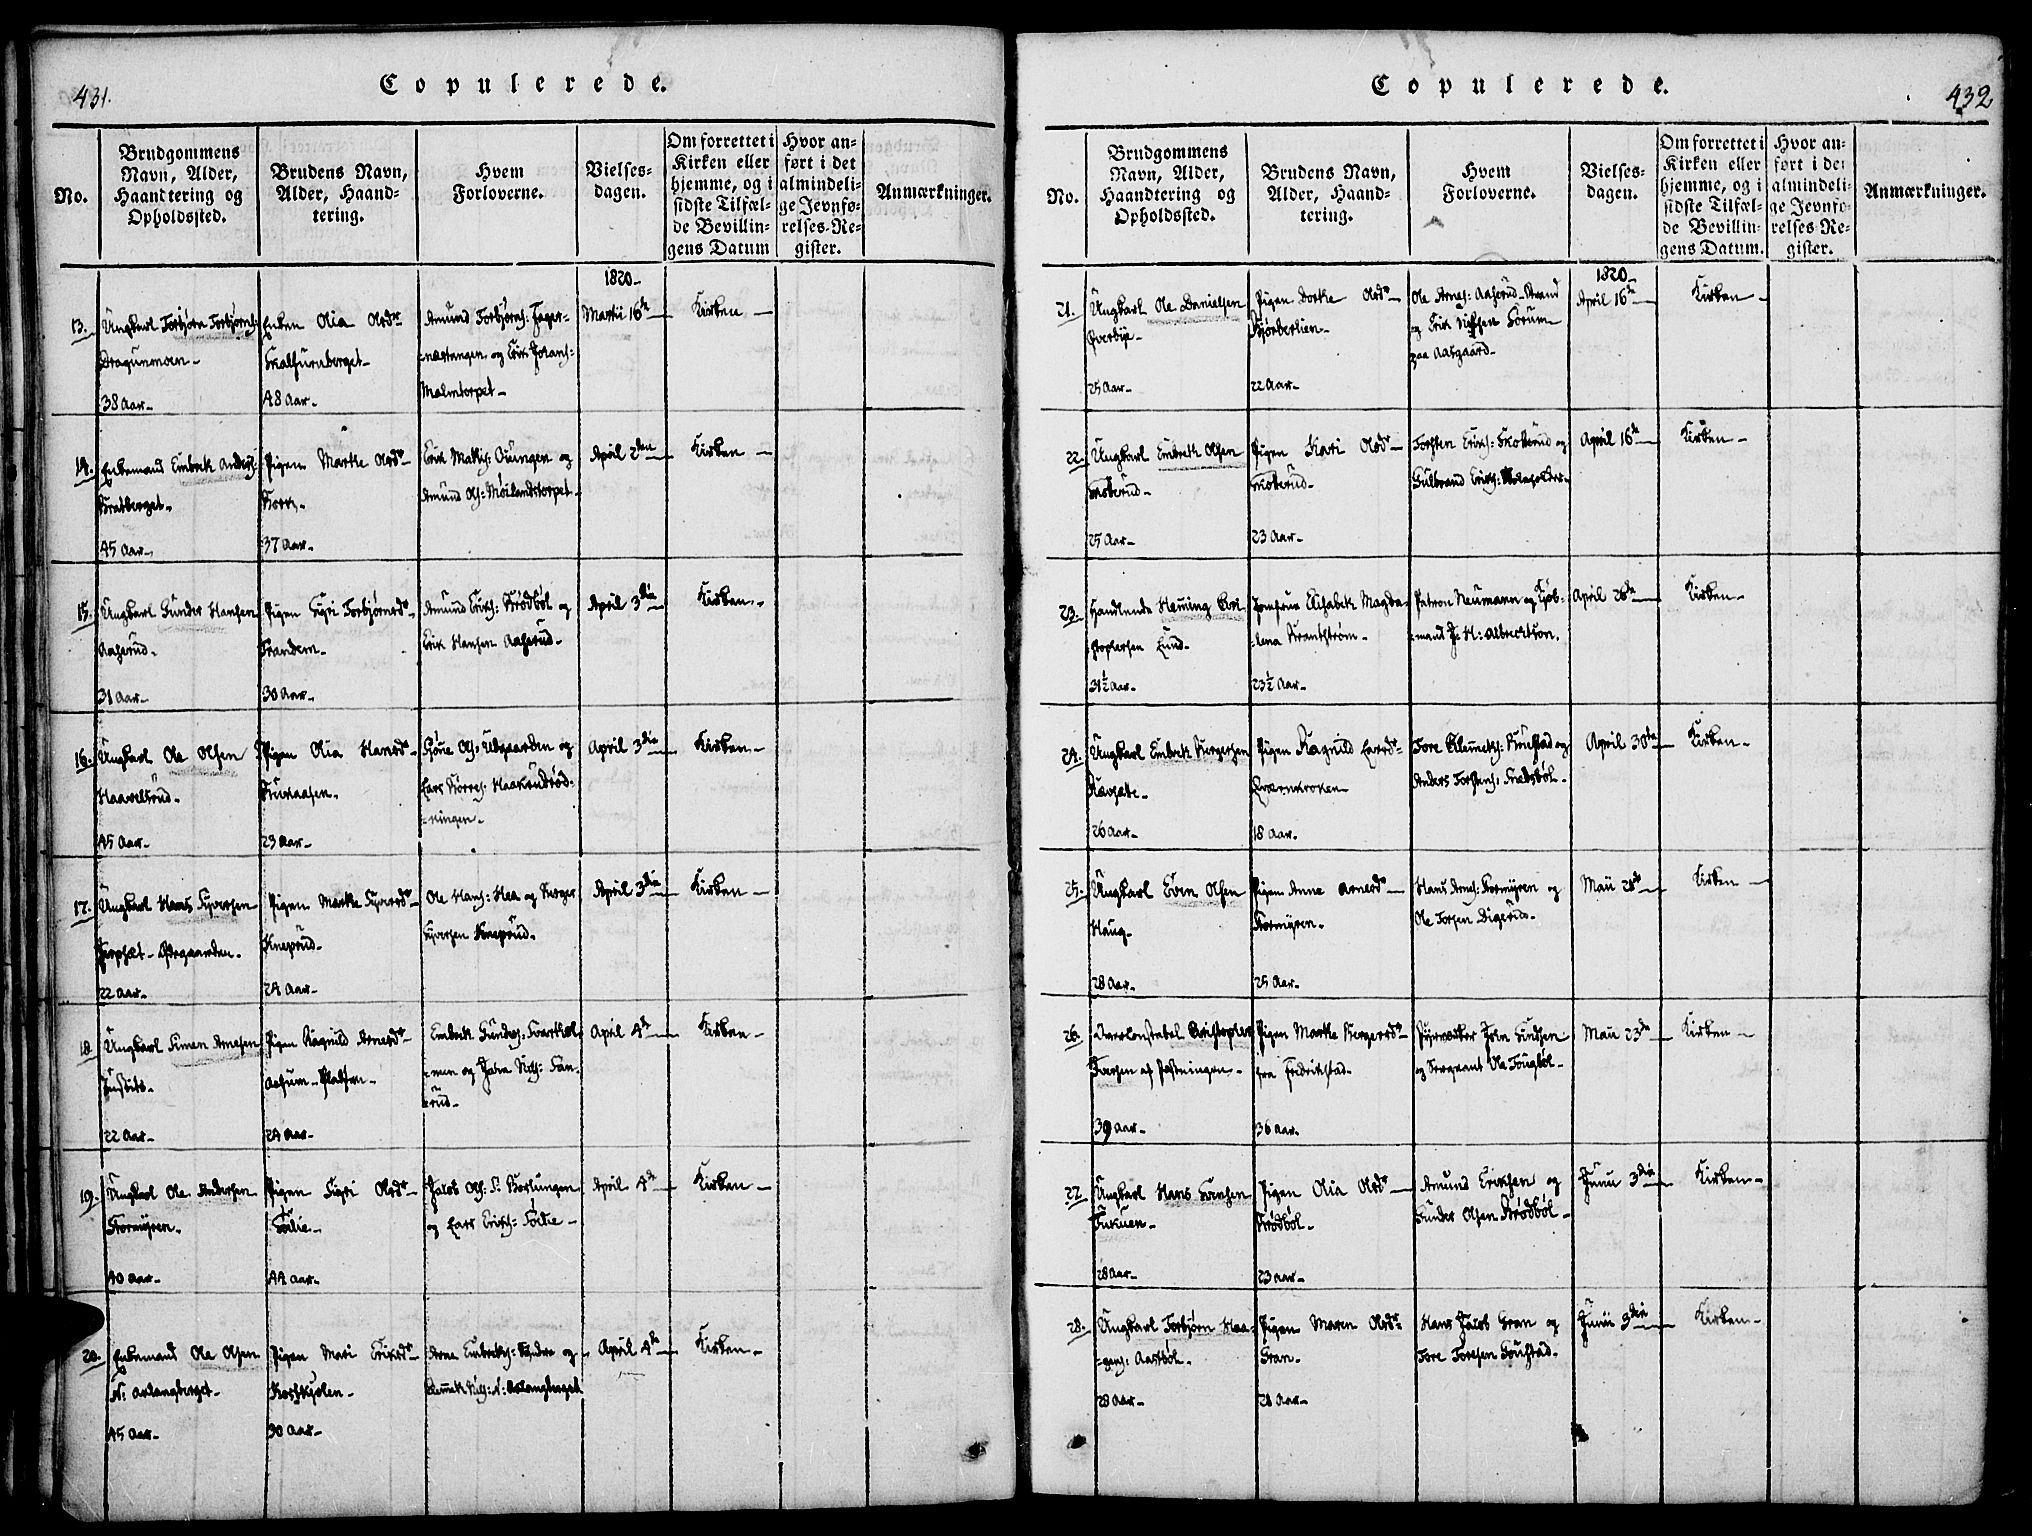 431.
Copulerede.
No.
Brudgommens
Navn, Alder,
Haandtering og
Opholdssted.
Brudens Navn,
Alder, Haand-
tering.
Hvem
Forloverne.
Vielses-
dagen.
Om forrettet i
Kirken eller
hjemme, og i
sidste Tilfæl-
de Bevillin-
gens Datum
Hvor an-
ført i det
almindeli-
ge Jevnfø-
relses-Re-
gister.
Anmærkninger.
1820-
13. Ungkarl Torbjørn Torbjørns:
Dragunmoen-
38 Aar-
Enken Olia Olsdr
Skalfuruberget-
48 Aar-
Amund Torbjørns: Fager-
=næstangen og Erik Johans:
Malmtorpet-
Martii 16de
Kirken-
14. Enkemand Embrek Anders:
Bratberget-
45 Aar-
Pigen Marthe Olsdr-
Norn-
37 Aar-
Erik Mathis: Oüngen og
Amund Ols: Møilandstorpet-
April 2den
Kirken-
15. Ungkarl Gunder Hansen
Aaserud-
31 Aar-
Pigen Sigri Torbjørnsdr-
Trandem-
30 Aar-
Amund Eriks: Brødbøl og
Erik Hansen Aaserud-
April 3die
Kirken-
16. Ungkarl Ole Olsen
Haavelsrud-
45 Aar-
Pigen Olia Hansdr-
23 Aar-
Ols: Utgaarden og
Lars Børres: Haakenrød-
=ningen-
April 3die
Kirken-
17. Ungkarl Hans Syversen
22 Aar-
Pigen Marthe Syversdr-
Kneprud-
24 Aar-
Ole Hans: Haa og Berger
Syversen Kneprud-
April 3die
Kirken-
18 Ungkarl Simen Arnesen
22 Aar-
Pigen Ragnild Arnesdr
24 Aar-
Embrek Gunders: Svarthol-
=men og John Nils: San-
=rud-
April 4de
Kirken-
19. Ungkarl Ole Andersen
Stormyren-
40 Aar-
Pigen Sigri Olsdr-
Sölie-
44 Aar-
Jacob Ols: S: Børlungen
og Lars Eriks: Sölie-
April 4de
Kirken-
20. Enkemand Ole Olsen
N: Aslangberget-
45 Aar-
Pigen Mari Eriksdr
30 Aar-
Arne Embreks: og
Clemet Nils: N: Aslangberget
April 4de
Kirken-
432
Copulerede.
No.
Brudgommens
Navn, Alder,
Haandtering og
Opholdssted.
Brudens Navn,
Alder, Haand-
tering.
Hvem
Forloverne.
Vielses-
dagen.
Om forrettet i
Kirken eller
hjemme, og i
sidste Tilfæl-
de Bevillin-
gens Datum.
Hvor an-
ført i det
almindeli-
ge Jevnfø-
relses-Re-
gister.
Anmærkninger.
1820-
21. Ungkarl Ole Danielsen
Overbye-
25 Aar-
Pigen Dorthe Olsdr-
Bjørberlien-
22 Aar-
Ole Arnes: Aaserud-Strand
og Erik Nilssen Sorum
paa Aasgaard-
April 16de
Kirken-
22. Ungkarl Embrek Olsen
Skoterud-
25 Aar-
Pigen Kari Olsd-
Skoterud-
23 Aar-
Torsten Eriks: Skotterud og
Gulbrand Eriks:
April 16de
Kirken-
23. Handlende Heming Chri
stophersen Lund-
31½ Aar-
Jomfrue Elisabeth Magda-
=lena Brantstrøm-
23½ Aar-
Patron Neumann og Kjøb-
=mand H: Albrechtson.
April 26de
Kirken-
24. Ungkarl Embrek Bergersen
26 Aar-
Pigen Ragnild Larsdr-
Qværnkroken
18 Aar-
Tore Clemets: og
Anders Torstens:
April 30te
Kirken-
25. Ungkarl Even Olsen
Haug-
28 Aar-
Pigen Anne Arnesdr-
Stormyren-
25 Aar-
Hans Arnes: Stormyren og
Ole Torsen Digerud-
Maii 21de
Kirken-
26. Christopher
Iversen af Fæstningen-
39 Aar-
Pigen Marthe Bergersdr
fra Fredrikstad-
36 Aar-
John Knudsen
og Sergeant Ole
Maii 23de
Kirken-
27. Ungkarl Hans Svensen
28 Aar-
Pigen Olia Olsdr-
Brødbøl-
23 Aar-
Amund Eriksen og
Gunder Olsen Brødbøl-
Junii 3die
Kirken-
28. Ungkarl Torbjørn Haa-
=gens: Aasbøl-
28 Aar-
Pigen Maren Olsdr-
Gran-
28 Aar-
Hans Jacob Gran og
Tore Toresen
Junii 3die
Kirken-